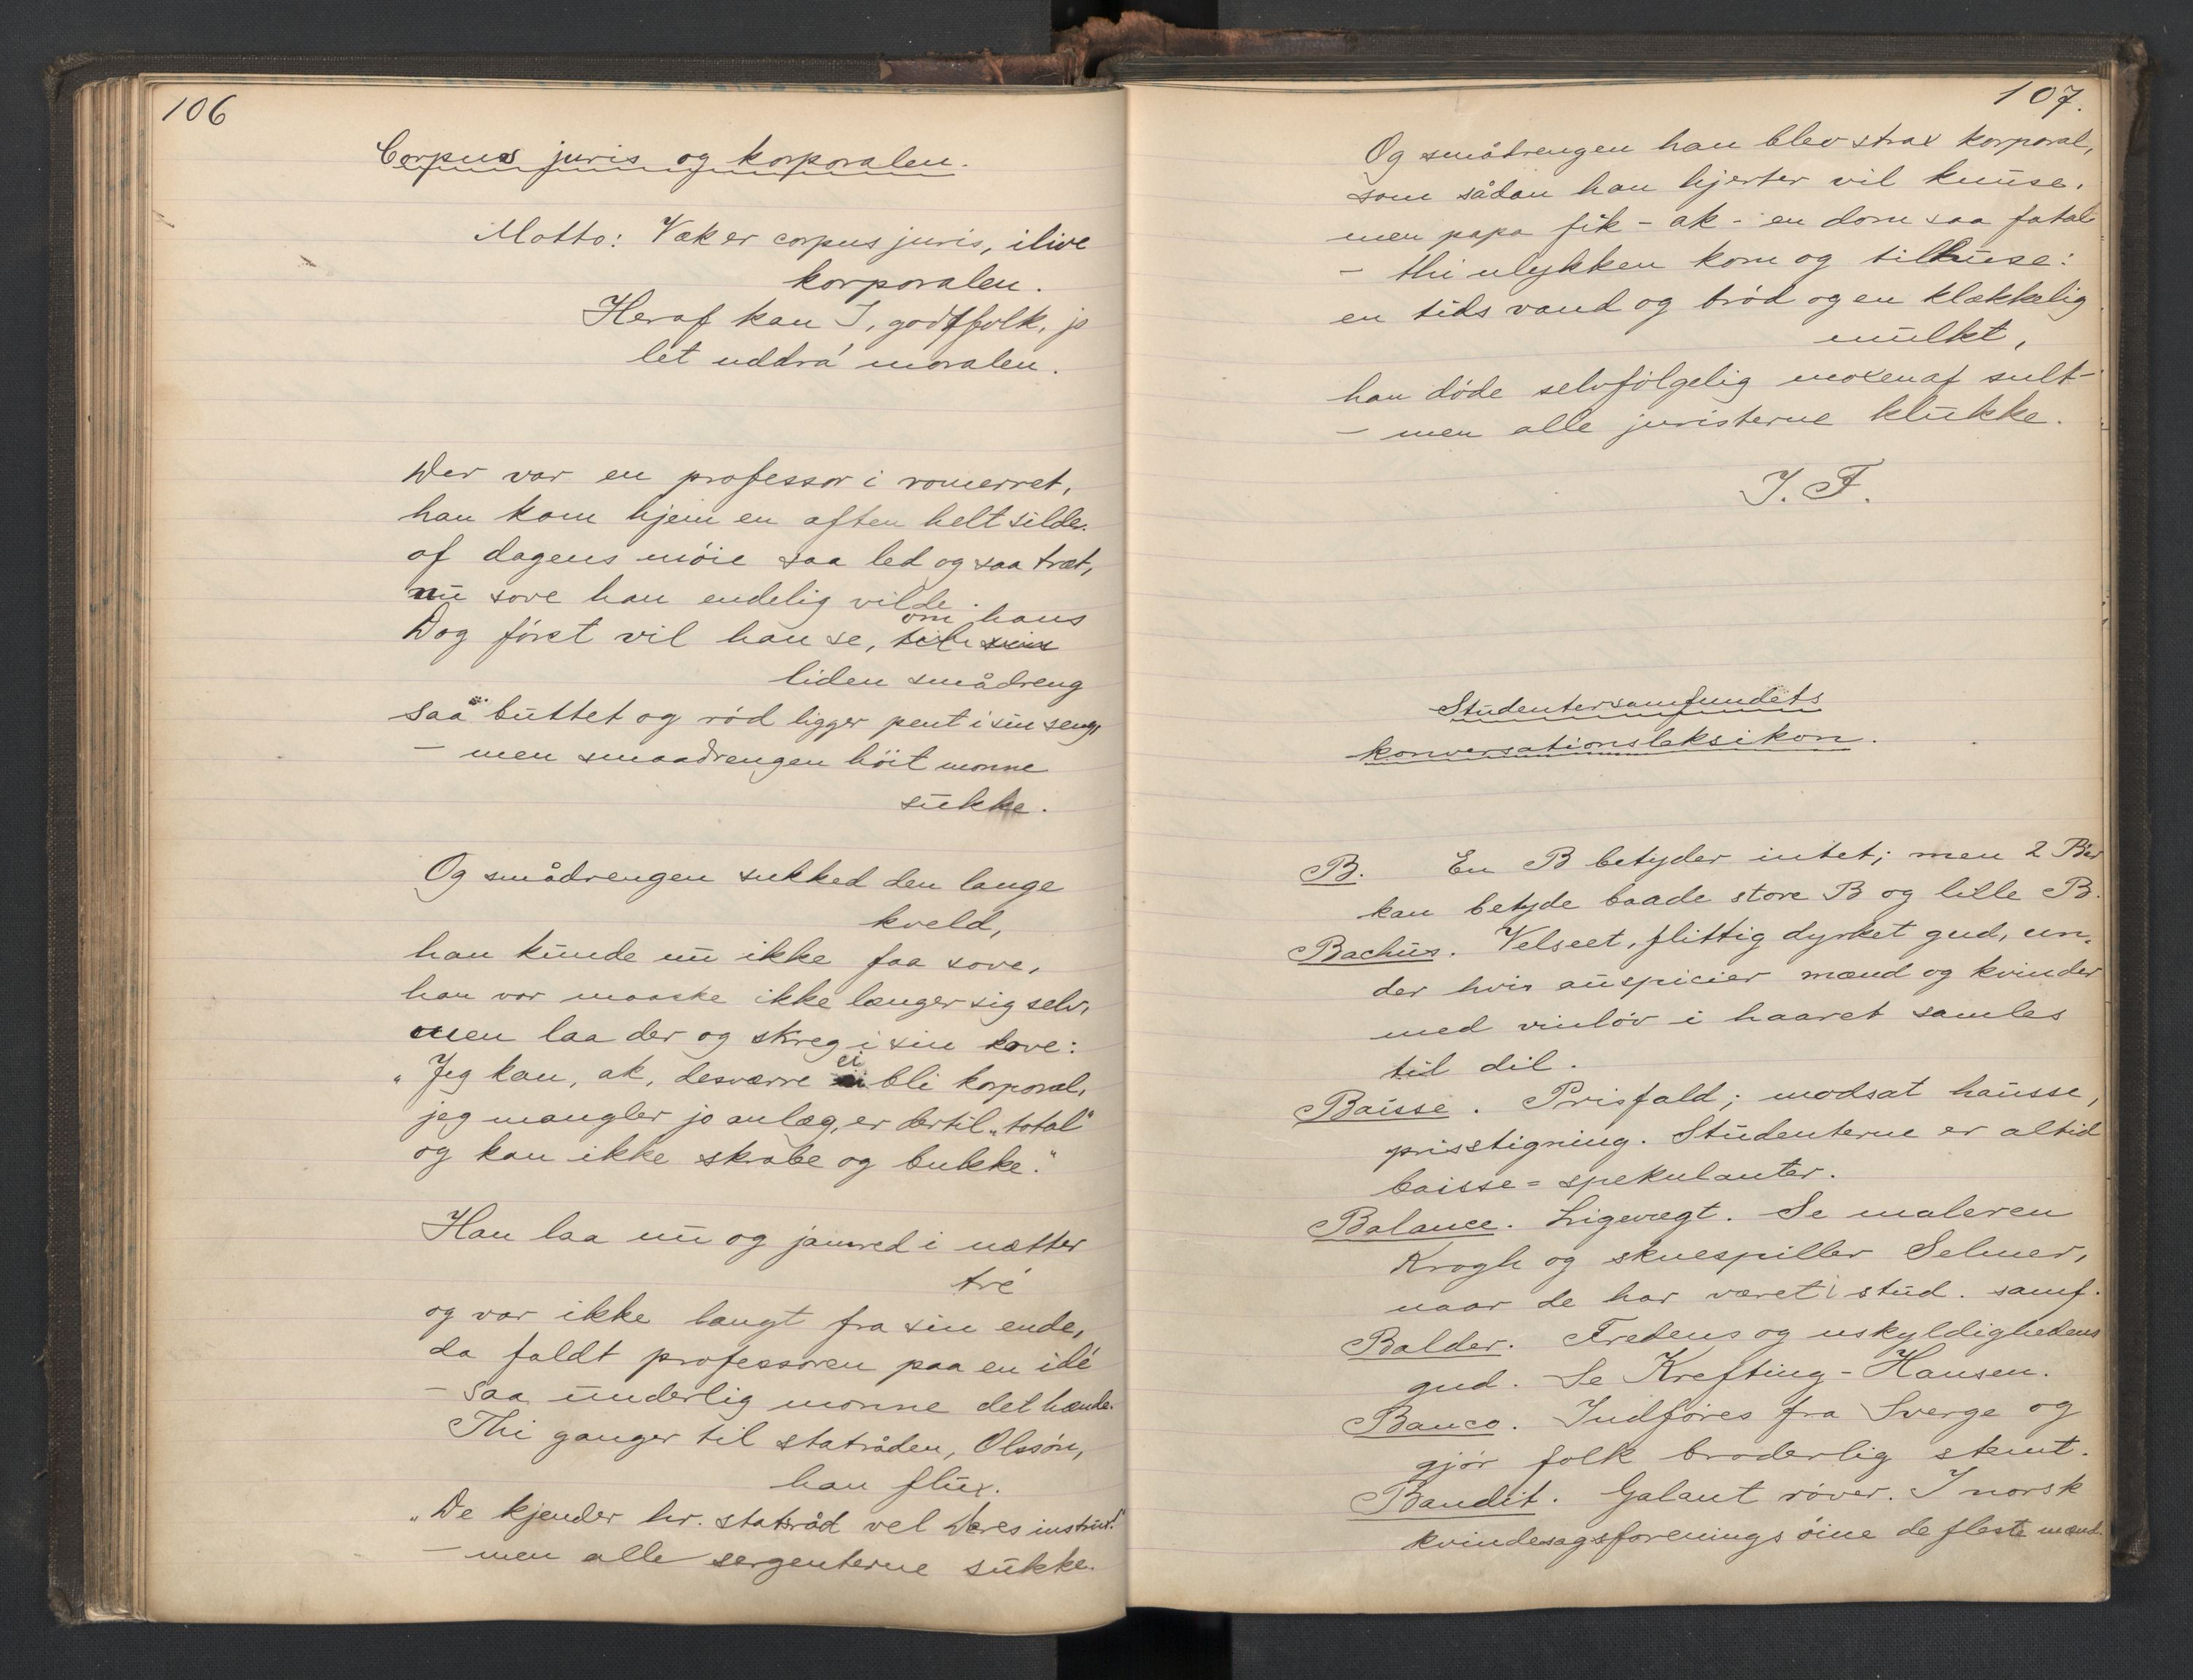 106
Corpus juris og korporalen.
Motto: Væk er corpus juris, ilive
korporalen.
Heraf kan I, godtfolk, jo
let uddra' moralen.
Der var en professor i romerret,
han kom hjem en aften helt silde.
af dagens møie saa led og saa træt,
nu sove han endelig vilde.
Dog først vil han se, om hans
liden smådreng
saa buttet og rød ligger pent i sin seng,
– men smaadrengen höit monne
sukke.
Og smådrengen sukked den lange
kveld,
han kunde nu ikke faa sove,
han var maaske ikke længer sig selv,
men laa der og skreg i sin kove:
„Jeg kan, ak, desværre ei bli korporal,
jeg mangler jo anlæg, er dertil „total"
og kan ikke skrabe og bukke."
Han laa nu og jamred i nætter
tré
og var ikke langt fra sin ende,
da faldt professoren paa en idé
– saa underlig monne det hænde.
Thi ganger til statsråden, Olssøn,
han flux.
„De kjender hr. statsråd vel Deres instrux!"
– men alle sergenterne sukke.
107.
Og smådrengen han blev strax korporal,
som sådan han hjerter vil knuse,
men papa fik – ak – en dom saa fatal
– thi ulykken kom og tilhuse:
en tids vand og brød og en klækkelig
mulkt,
han døde selvfølgelig moxen af sult –
– men alle juristerne klukke.
J. F.
Studentersamfundets
konversationsleksikon.
B. En B betyder intet; men 2 B'er
kan betyde baade store B og lille B.
Bachus. Velseet, flittig dyrket gud, un-
der hvis auspicier mænd og kvinder
med vinløv i haaret samles
til dil.
Baisse. Prisfald; modsat hausse,
prisstigning. Studenterne er altid
baisse=spekulanter.
Balance. Ligevægt. Se maleren
Krogh og skuespiller Selmer,
naar de har været i stud. samf.
Balder. Fredens og uskyldighedens
gud. Se Krefting-Hansen.
Banco. Indføres fra Sverge og
gjør folk broderlig stemt.
Bandit. Galant røver. I norsk
kvindesagsforenings øine de fleste mænd